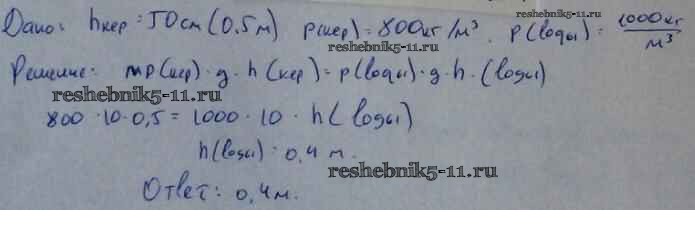 Дано: hкер = 50см (0.5м) p(кер) = 800кг/м³. p(воды) = 1000кг/м³
reshebnik5-11.ru
reshebnik5-11.ru
Решение: p(кер)·g·h(кер) = p(воды)·g·h.(воды)
reshebnik5-11.ru
800·10·0,5 = 1000·10·h(воды)
h(воды) = 0,4 м.
reshebnik5-11.ru
Ответ: 0,4м.